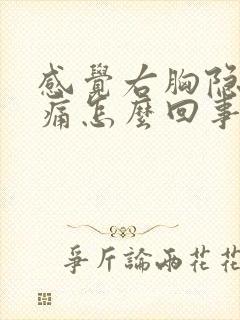 感覺右胸隐
痛怎麼回事
爭斤論兩花花